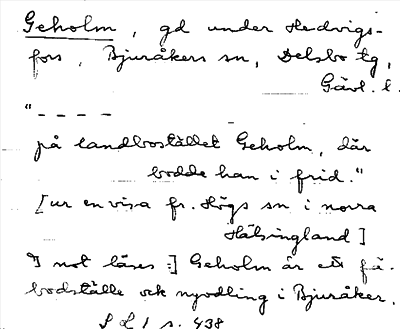 Geholm, gd under Hedvigs-
fors, Bjuråkers sn, Delsbo tg,
Gävl. l.
"– – – –
på landbostället Geholm, där
bodde han i frid."
[ur en visa fr. Högs sn i norra
Hälsingland]
I not läses:] Geholm är ett fä-
bodställe och nyodling i Bjuråker.
S L 1 s. 438